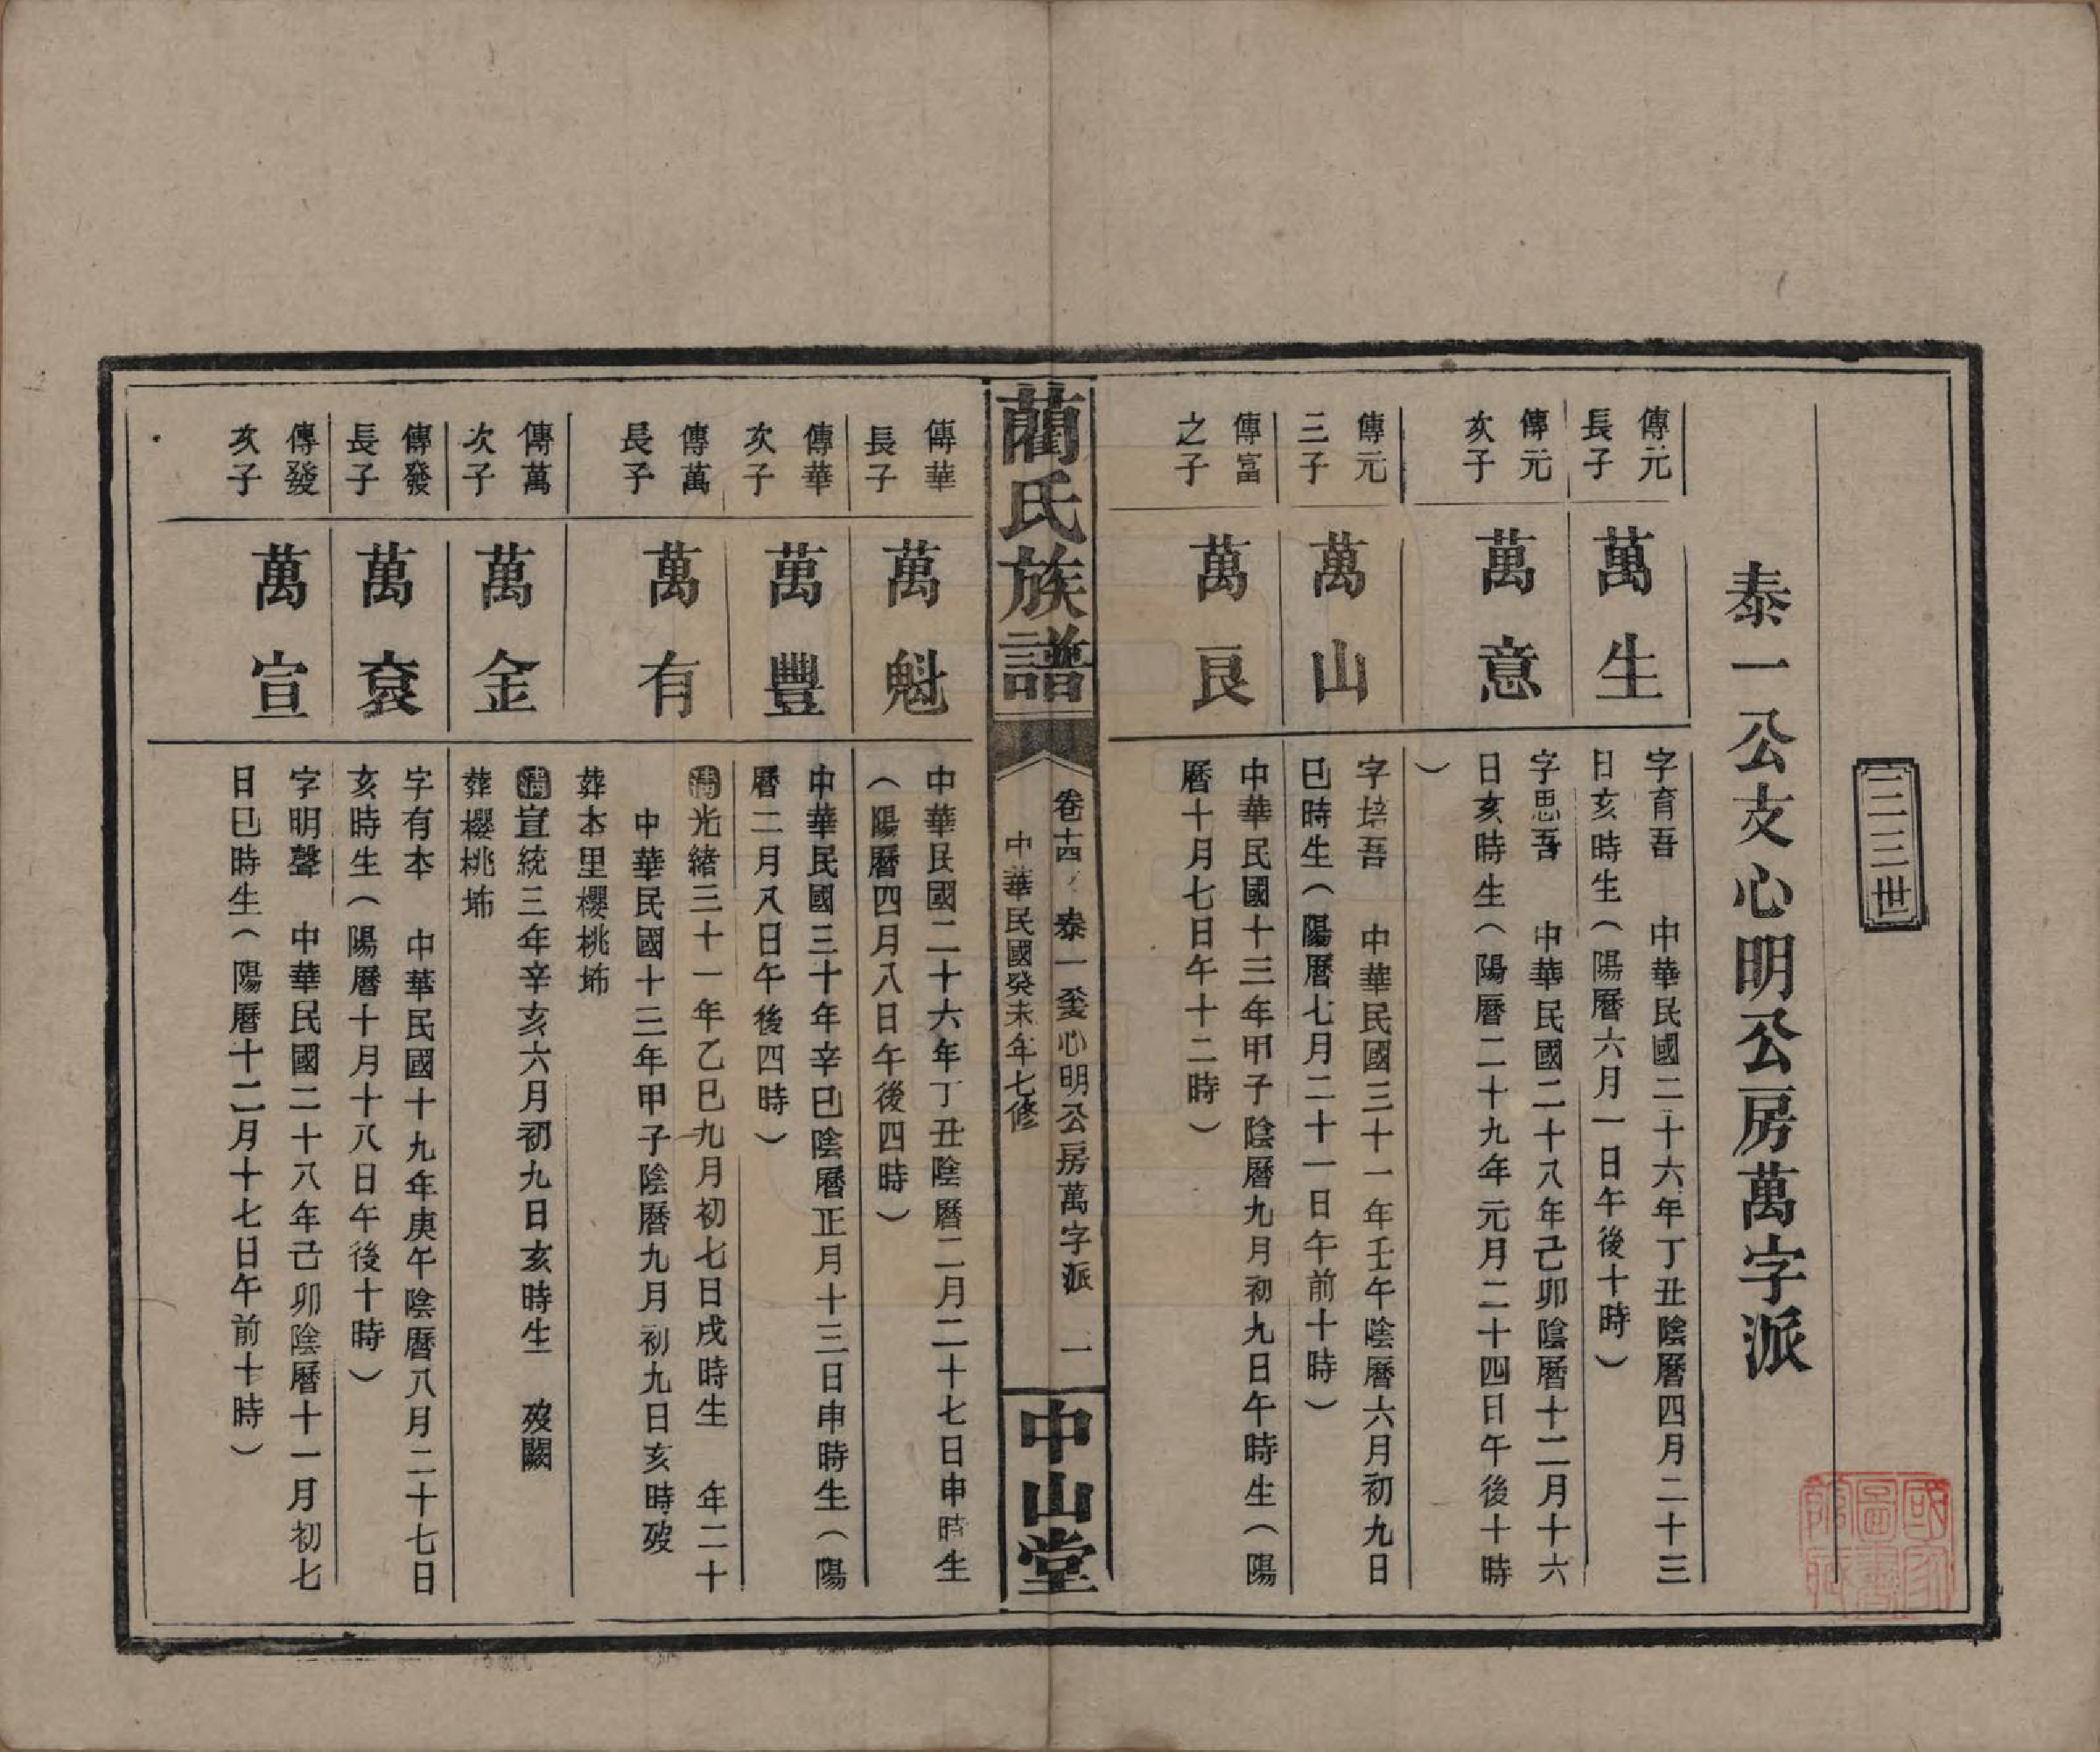 三三世
泰一公支心明公房萬字派
傳元
長子
萬生
字育吾　中華民國二十六年丁丑陰曆四月二十三
日亥時生（陽曆六月一日午後十時）
傳元
次子
萬意
字思吾　中華民國二十八年己卯陰曆十二月十六
日亥時生（陽曆二十九年元月二十四日午後十時
）
傳元
三子
萬山
字培吾　中華民國三十一年壬午陰曆六月初九日
巳時生（陽曆七月二十一日午前十時）
傳富
之子
萬良
中華民國十三年甲子陰曆九月初九日午時生（陽
曆十月七日午十二時）
藺氏族譜
卷十四　泰一至心明公房萬字派　一
中華民國癸未年七修
中山堂
傳華
長子
萬魁
中華民國二十六年丁丑陰曆二月二十七日申時生
（陽曆四月八日午後四時）
傳華
次子
萬豐
中華民國三十年辛巳陰曆正月十三日申時生（陽
曆二月八日午後四時）
傳萬
長子
萬有
清光緒三十一年乙巳九月初七日戌時生　年二十
中華民國十三年甲子陰曆九月初九日亥時歿
葬本里櫻桃㘵
傳萬
次子
萬金
清宣統三年辛亥六月初九日亥時生　歿闕
葬櫻桃㘵
傳發
長子
萬袞
字有本　中華民國十九年庚午陰曆八月二十七日
亥時生（陽曆十月十八日午後十時）
傳發
次子
萬宣
字明聲　中華民國二十八年己卯陰曆十一月初七
日巳時生（陽曆十二月十七日午前十時）
國家圖書館藏